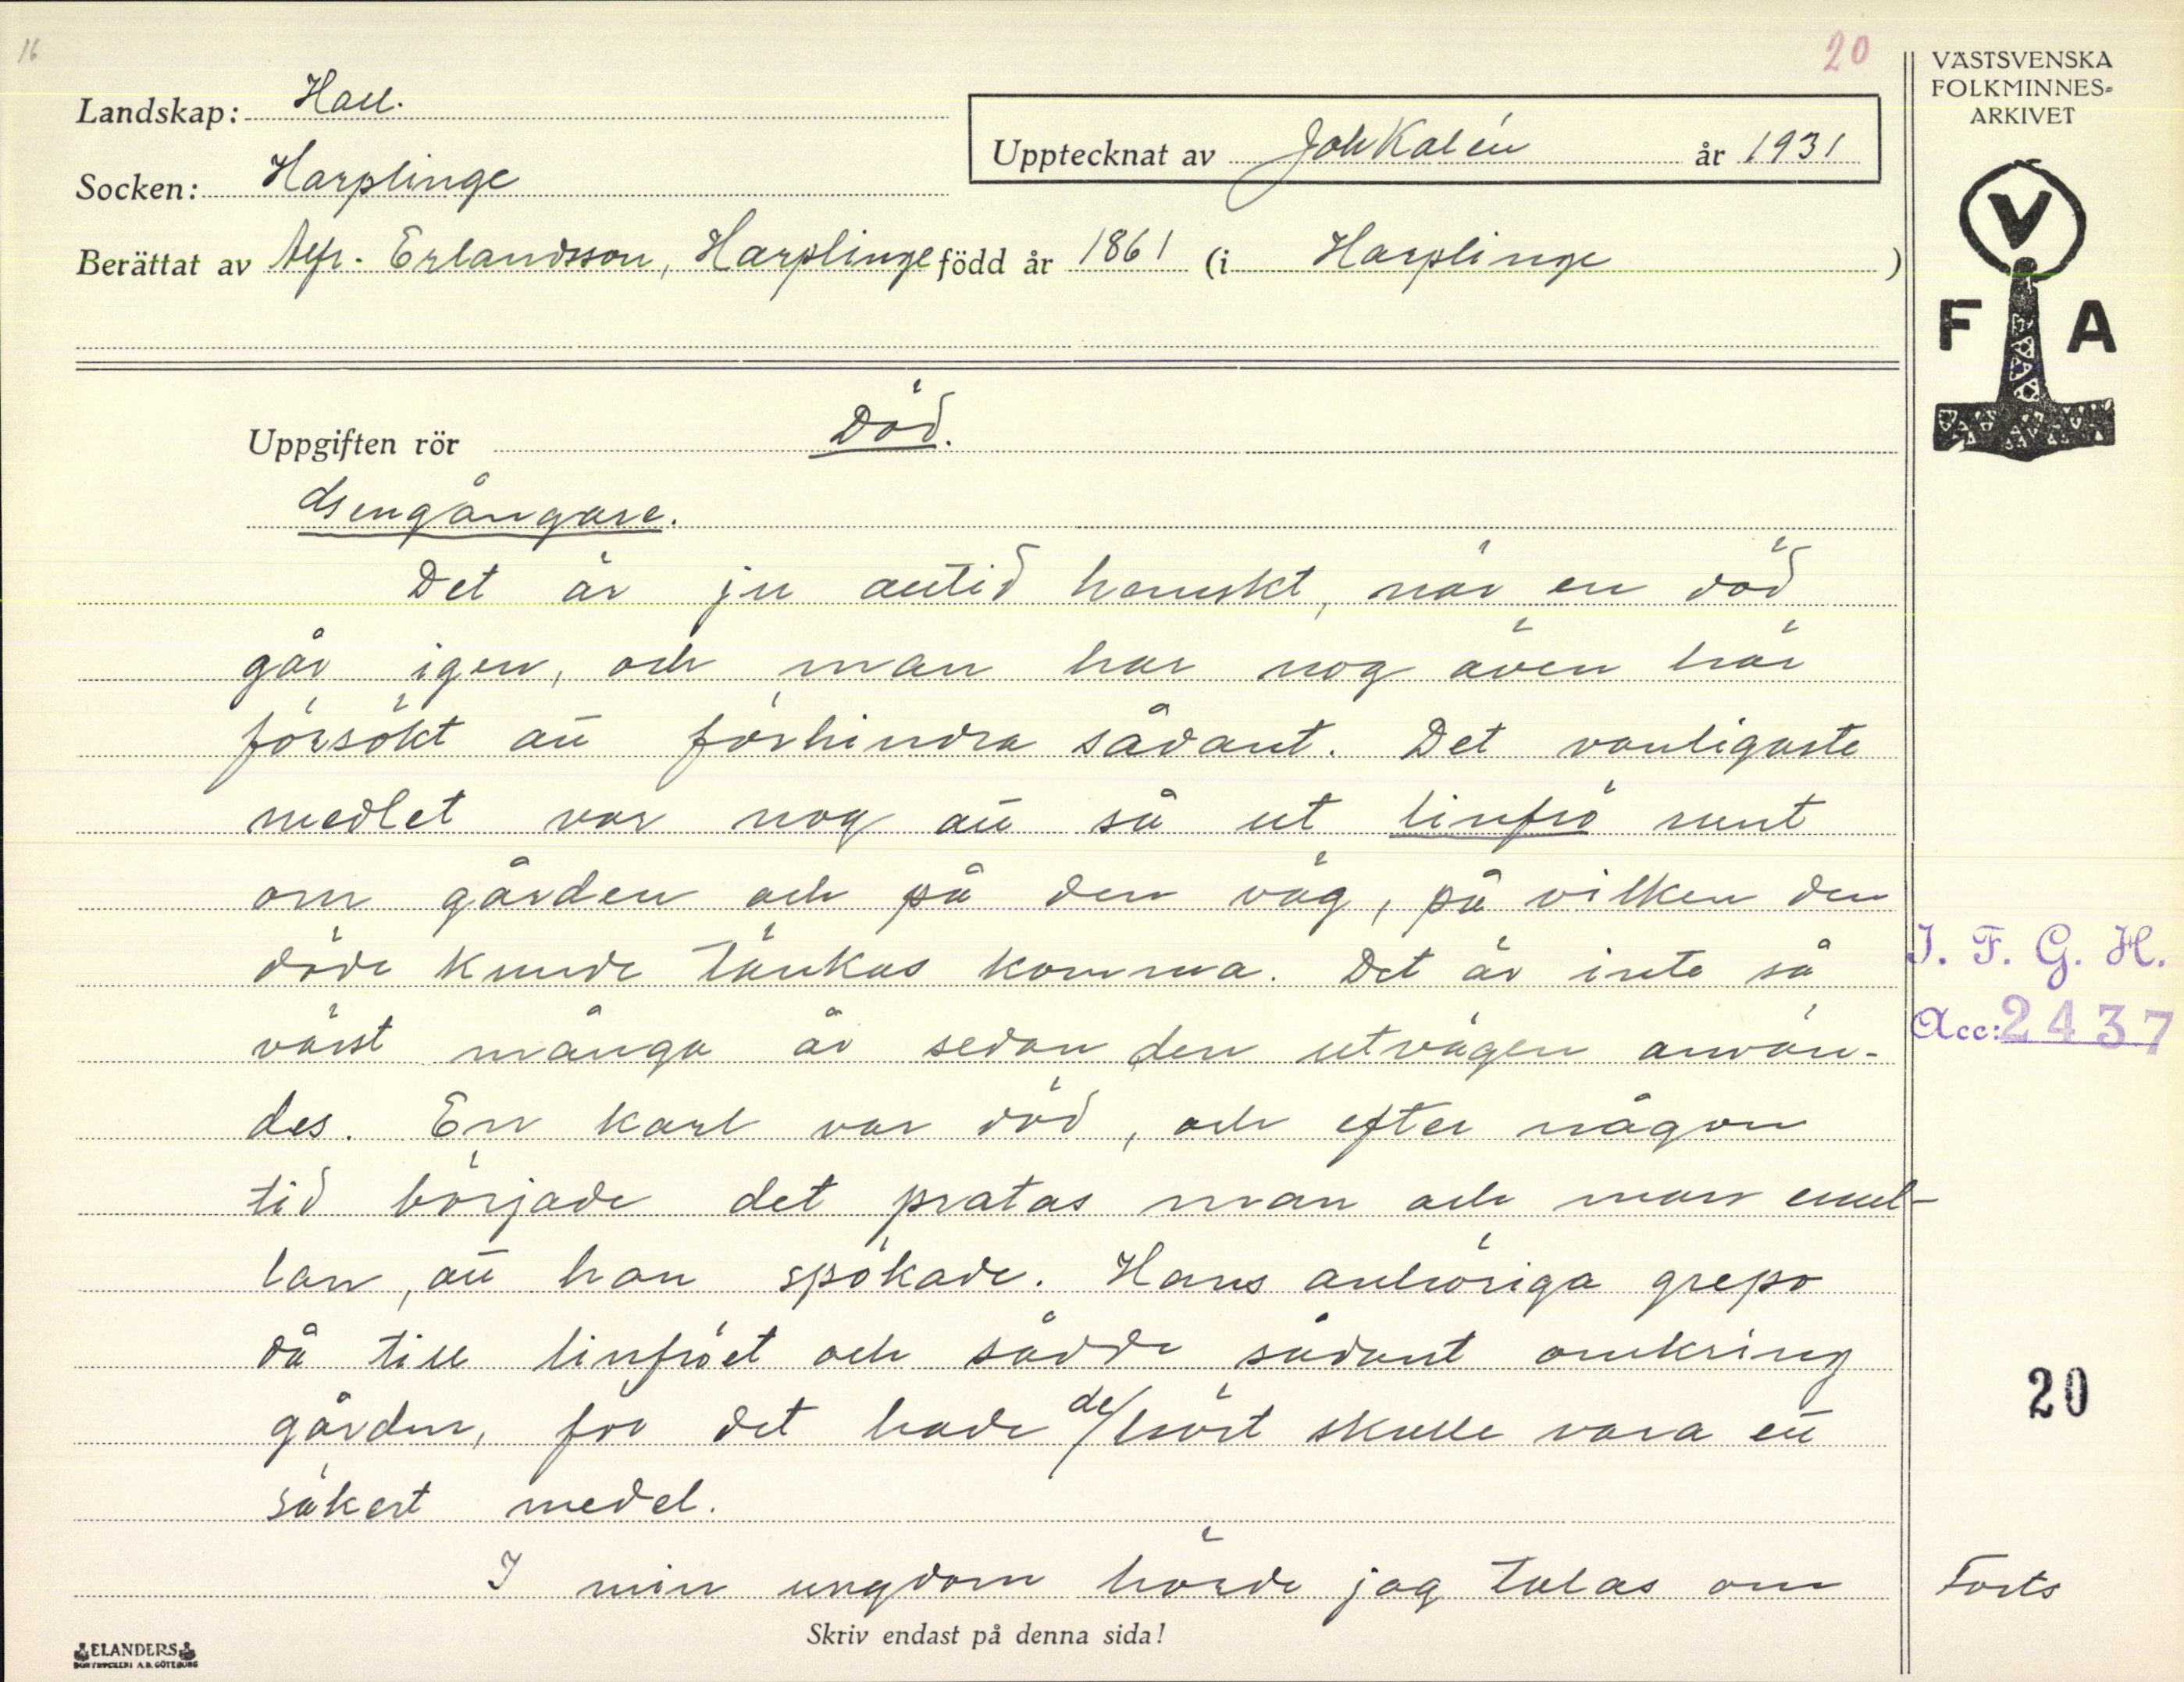 16
20
VÄSTSVENSKA
FOLKMINNES-
ARKIVET
Landskap: Hall.
Upptecknat av Joh Kalén år 1931
Socken: Harplinge
Berättat av Alfr. Erlandsson, Harplinge född år 1861 (i Harplinge)
V
F A
Uppgiften rör Död.
Gengångare.
Det är ju alltid hemskt, när en död
går igen, och man har nog även här
försökt att förhindra sådant. Det vanligaste
medlet var nog att så ut linfrö runt
om gården och på den väg, på vilken den
döde kunde tänkas komma. Det är inte så
värst många år sedan den utvägen använ-
des. En karl var död, och efter någon
tid började det pratas man och man emel-
lan, att han spökade. Hans anhöriga grepo
då till linfröet och sådde sådant omkring
gården, för det hade de/hört skulle vara ett
säkert medel.
I min ungdom hörde jag talas om
Forts
I. F. G. H.
Acc: 2437
20
Skriv endast på denna sida!
ELANDERS
BOKTRYCKERI A.B. GÖTEBORG